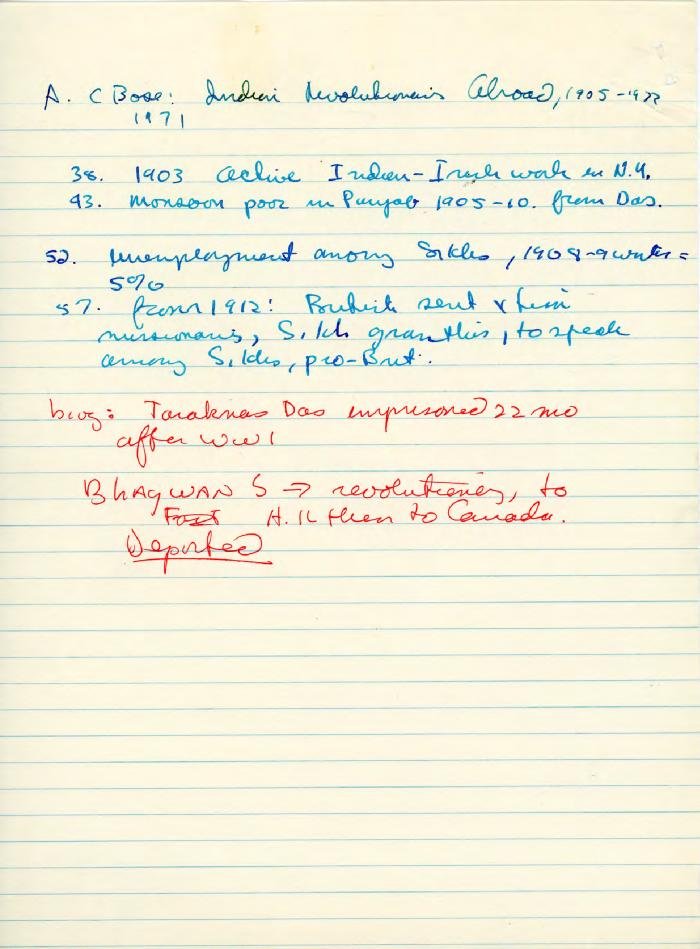 A. C Bose: Indian Revolutionaries Abroad, 1905-1922
1971
38. 1903 active Indian-Irish work in N.Y.
43. Monsoon poor in Punjab 1905-10. from Das.
52. Unemployment among Sikhs, 1908-9 winter =
5%
57. from 1912: British sent
missionaries, Sikh granthis, to speak
among Sikhs, pro-Brit.
biog: Taraknas Das imprisoned 22 mo
after WW1
BhAgWAN S → revolutionary, to
H.K then to Canada.
Deported